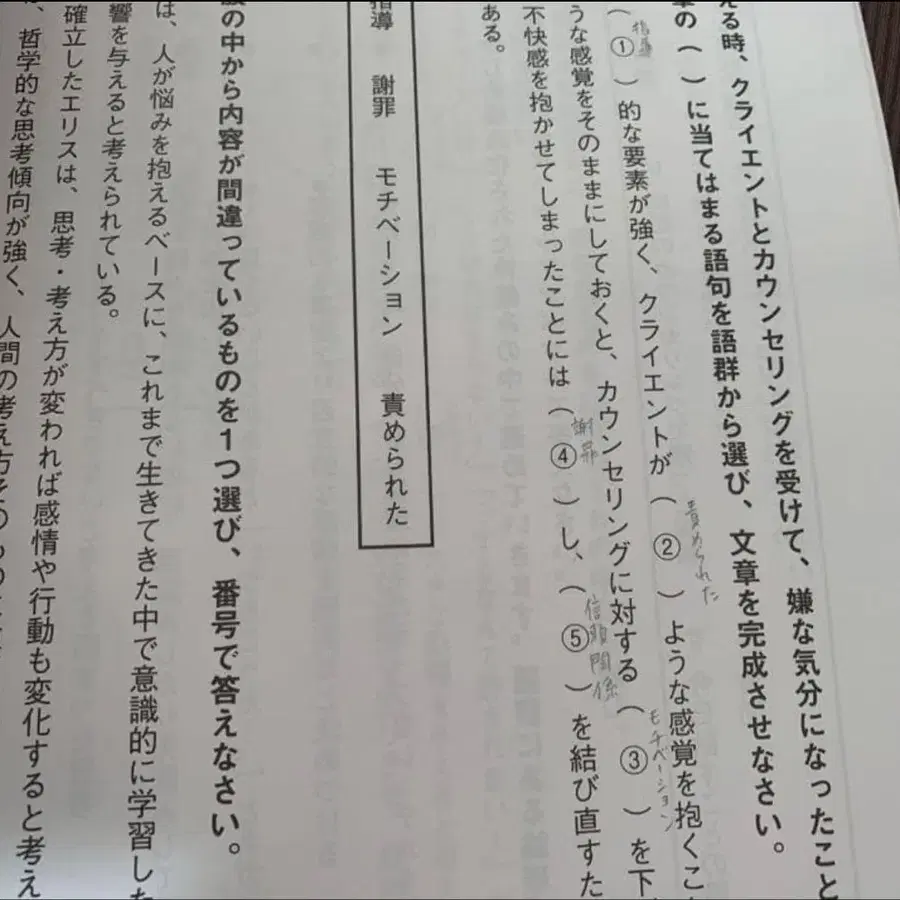 える時、クライエントとカウンセリングを受けて、嫌な気分になったこと
の（　）に当てはまる語句を語群から選び、文章を完成させなさい。
（①）的な要素が強く、クライエントが（②）ような感覚を抱くこ
指導
責められた
うな感覚をそのままにしておくと、カウンセリングに対する（③）を下
モチベーション
不快感を抱かせてしまったことには（④）し、（⑤）を結び直すた
謝罪
信頼関係
ある。
指導　謝罪　モチベーション　責められた
の中から内容が間違っているものを1つ選び、番号で答えなさい。
は、人が悩みを抱えるベースに、これまで生きてきた中で意識的に学習した
響を与えると考えられている。
確立したエリスは、思考・考え方が変われば感情や行動も変化すると考え
哲学的な思考傾向が強く、人間の考え方そのもの